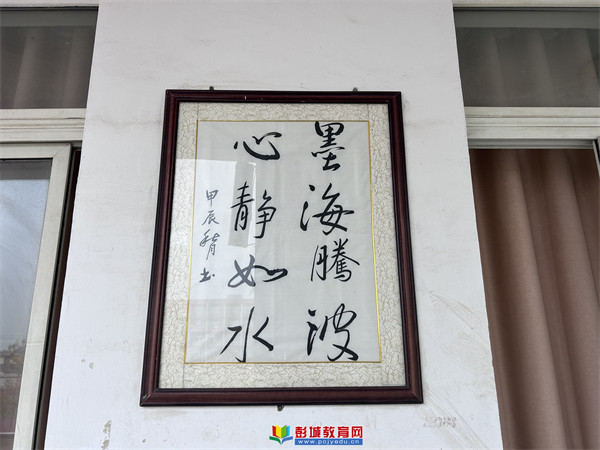 墨海腾波
心静如水
甲辰
书
彭城教育网
www.pcjyedu.cn